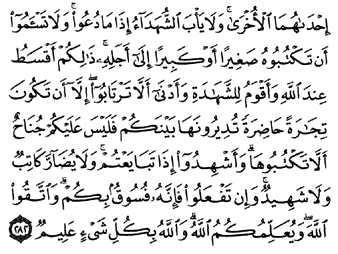 إِحۡدَىٰهُمَا ٱلۡأُخۡرَىٰۚ وَلَا يَأۡبَ ٱلشُّهَدَآءُ إِذَا مَا دُعُواْۚ وَلَا تَسۡـَٔمُوٓاْ
أَن تَكۡتُبُوهُ صَغِيرًا أَوۡ كَبِيرًا إِلَىٰٓ أَجَلِهِۦۚ ذَٰلِكُمۡ أَقۡسَطُ
عِندَ ٱللَّهِ وَأَقۡوَمُ لِلشَّهَٰدَةِ وَأَدۡنَىٰٓ أَلَّا تَرۡتَابُوٓاْ إِلَّآ أَن تَكُونَ
تِجَٰرَةً حَاضِرَةً تُدِيرُونَهَا بَيۡنَكُمۡ فَلَيۡسَ عَلَيۡكُمۡ جُنَاحٌ
أَلَّا تَكۡتُبُوهَاۗ وَأَشۡهِدُوٓاْ إِذَا تَبَايَعۡتُمۡۚ وَلَا يُضَآرَّ كَاتِبٌ
وَلَا شَهِيدٌۚ وَإِن تَفۡعَلُواْ فَإِنَّهُۥ فُسُوقُۢ بِكُمۡۗ وَٱتَّقُواْ
ٱللَّهَۖ وَيُعَلِّمُكُمُ ٱللَّهُۗ وَٱللَّهُ بِكُلِّ شَيۡءٍ عَلِيمٌ ٢٨٢